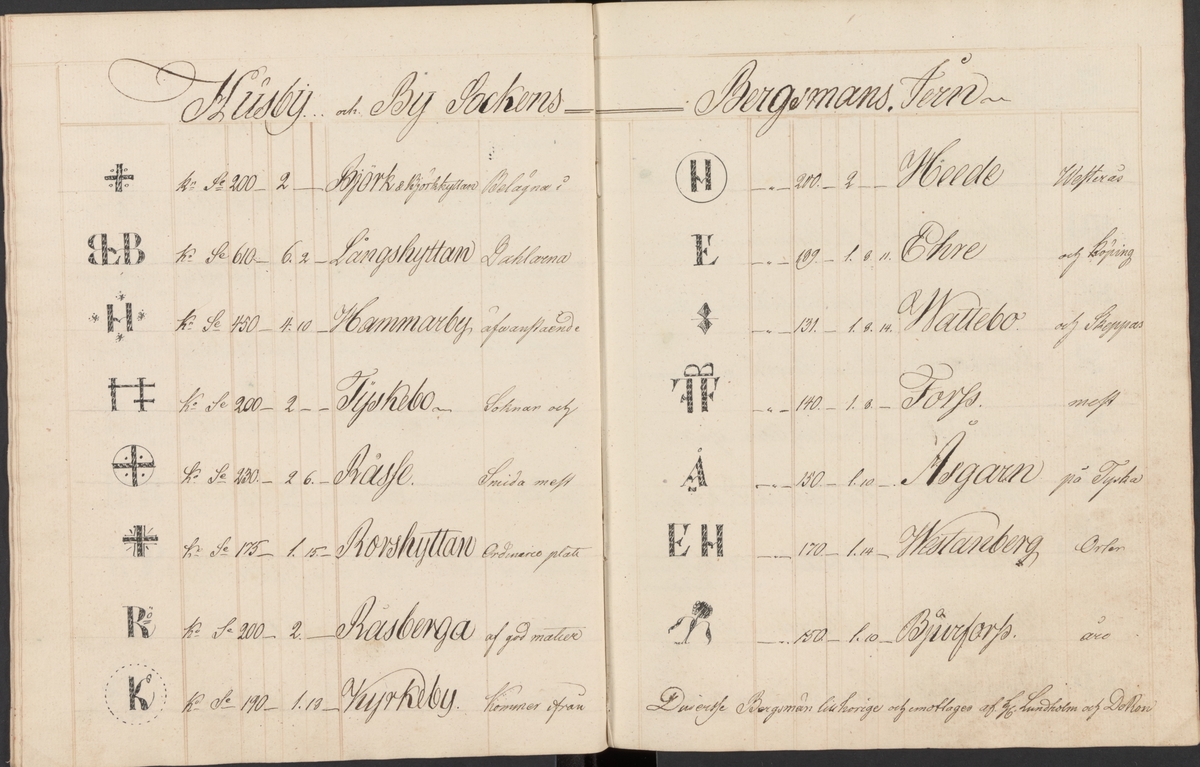 Husby och By Sockens
K: Se 200 2 Björk & Björkhyttan Belägna i
ÆB K: Se 610 6. 2 Långshyttan Dahlarna
H K: Se 450 4. 10 Hammarby åfvanstående
K: Se 200 2 Tyskebo Soknar och
K: Se 230 2 6. Råsse. Smida mest
K: Se 175 1. 15 Rorshyttan Ordinarie plate
R K: Se 200 2. Råsberga af god
K K: Se 190 1. 18 Kyrkeby. Kommer ifrån
Bergsmans Jern
H 200 2 Heede Westerås
E 199. 1. 8. 11. Ehre och Köping
131. 1. 8. 14. Wattebo och Skeppas
B TF 140. 1. 8. Forss. mest
Å 130. 1. 10 Åsgarn på Tyska
E H 170. 1. 14. Westanberg Orter
150. 1. 10 Bjurforss. äro
Diverse Bergsmän och emottages af Lundholm och